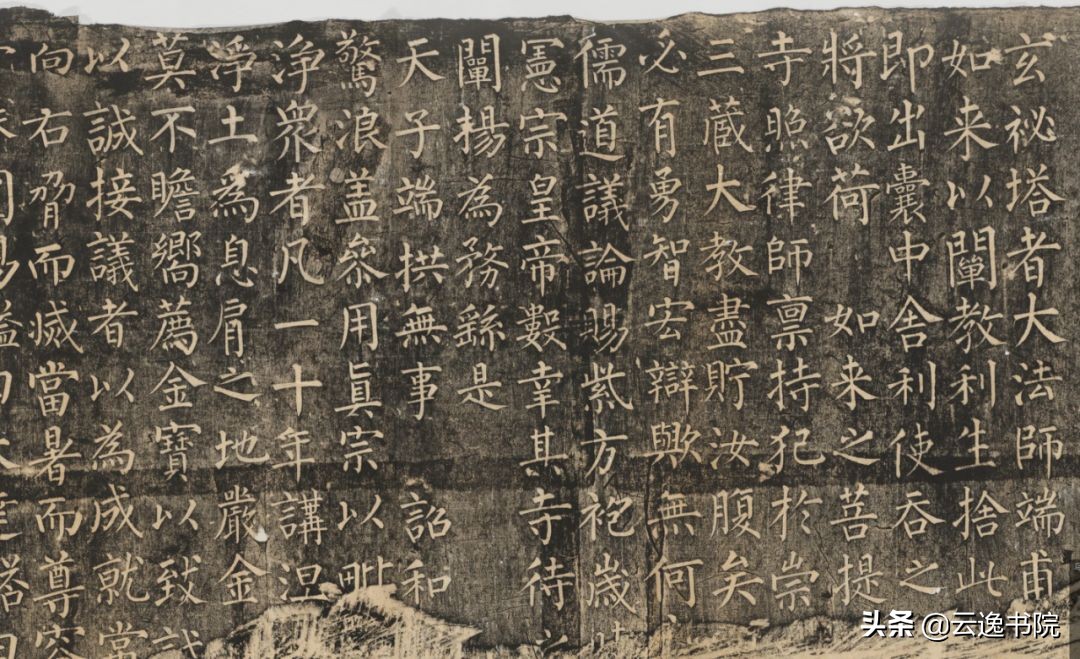 玄祕塔者大法師端甫
如来以闡教利生捨此
即出囊中舍利使吞之
將欲荷 如来之菩提
寺照律師禀持犯於崇
三藏大教盡貯汝腹矣
必有勇智宏辯歟無何
儒道議論賜紫方袍歲時
憲宗皇帝數幸其寺待之
闡揚為務繇是
天子端拱無事 詔和
驚浪盖叅用真宗以毗
净衆者凡一十年講涅
淨土為息肩之地嚴金
莫不瞻嚮薦金寶以致誠
以誠接議者以為成就常
向右脅而滅當暑而尊容
头条 @云逸书院